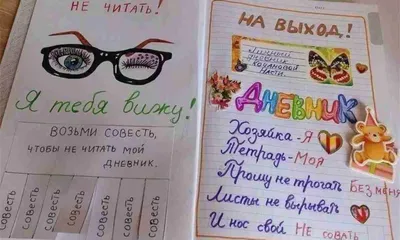 НЕ ЧИТАТЬ!
Я тебя вижу!
ВОЗЬМИ СОВЕСТЬ,
ЧТОБЫ НЕ ЧИТАТЬ МОЙ
ДНЕВНИК.
СОВЕСТЬ
СОВЕСТЬ
СОВЕСТЬ
СОВЕСТЬ
СОВЕСТЬ
СОВЕСТЬ
СОВЕСТЬ
НА ВЫХОД!
Личный
дневник
ЧАСТИ.
ДНЕВНИК
Хозяйка-Я
Тетрадь-Моя
Прошу не трогать БЕЗ МЕНЯ
Листы не вырывай
И нос свой НЕ СОВАТЬ